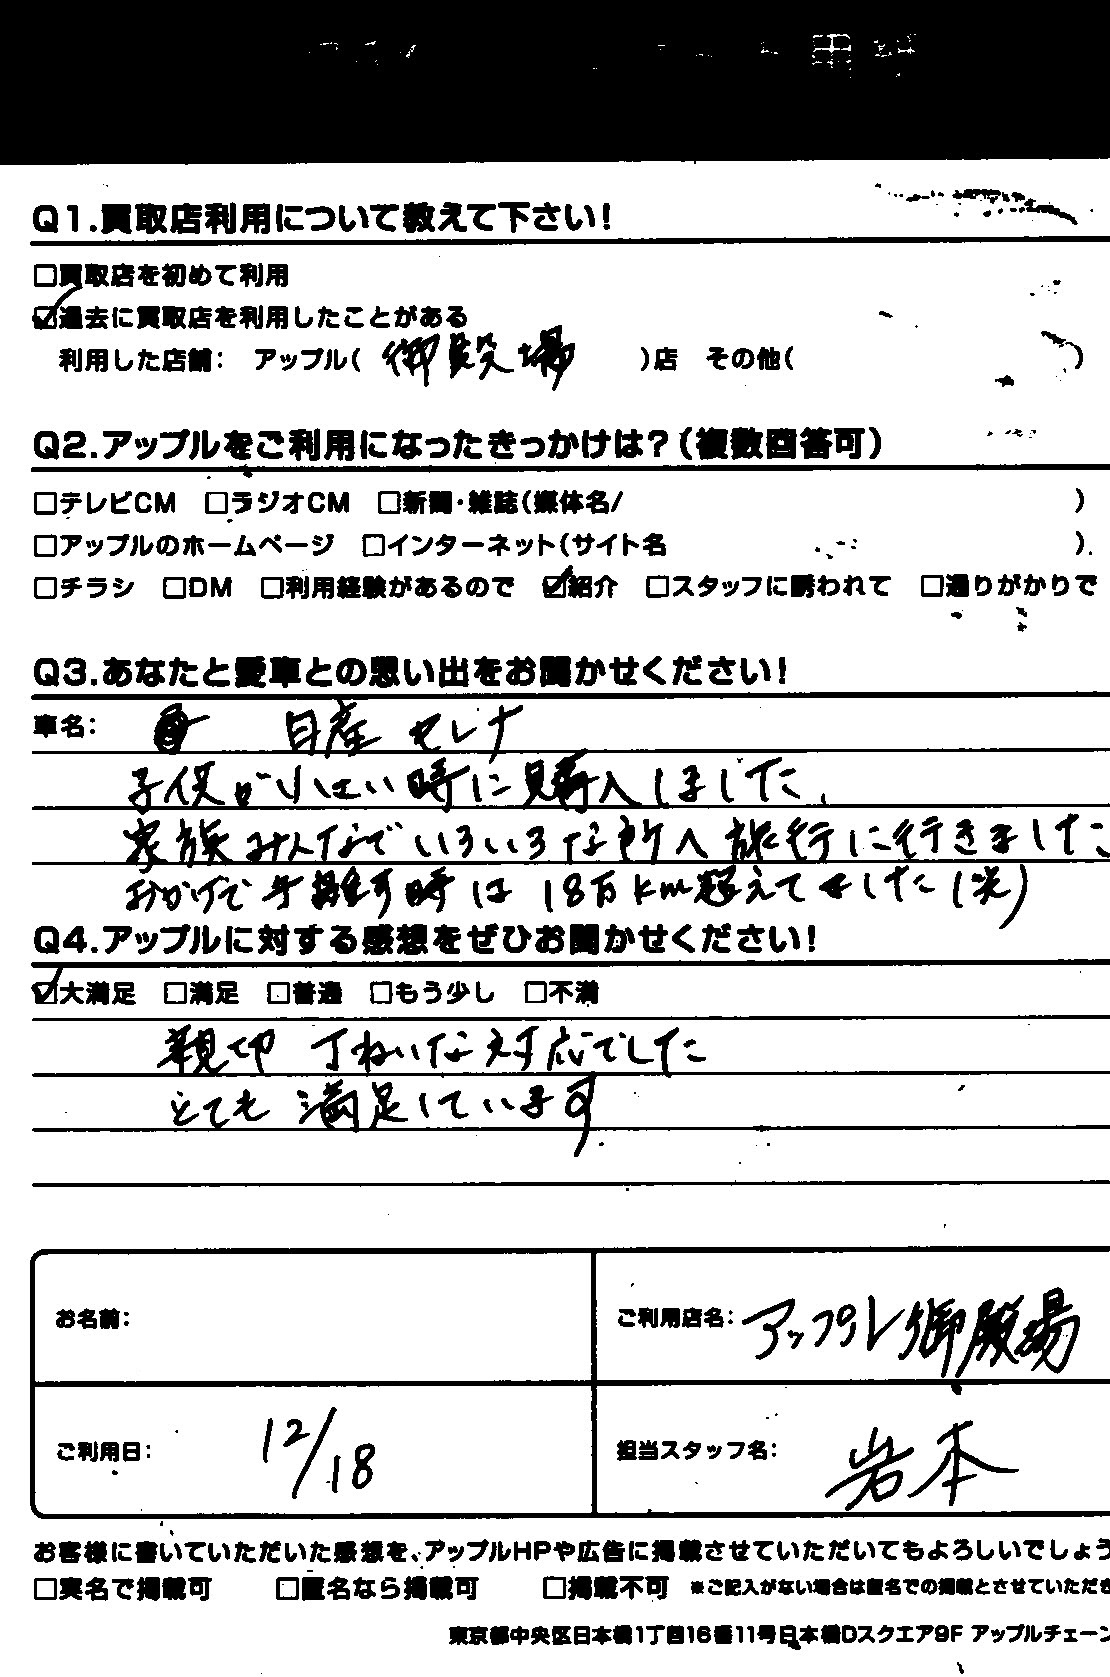 Q1.買取店利用について教えて下さい!
□買取店を初めて利用
☑過去に買取店を利用したことがある
利用した店舗: アップル( 御殿場 )店 その他( )
Q2.アップルをご利用になったきっかけは?(複数回答可)
□テレビCM □ラジオCM □新聞・雑誌(媒体名/ )
□アップルのホームページ □インターネット(サイト名 )
□チラシ □DM □利用経験があるので ☑紹介 □スタッフに誘われて □通りがかりで
Q3.あなたと愛車との思い出をお聞かせください!
車名: 日産 セレナ
子供が小さい時に購入しました、
家族みんなでいろいろな所へ旅行に行きました
おかげで手離す時は18万km超えてました(笑)
Q4.アップルに対する感想をぜひお聞かせください!
☑大満足 □満足 □普通 □もう少し □不満
親切 丁ねいな対応でした
とても満足しています
お名前:
ご利用店名: アップル御殿場
ご利用日: 12/18
担当スタッフ名: 岩本
お客様に書いていただいた感想を、アップルHPや広告に掲載させていただいてもよろしいでしょう
□実名で掲載可 □匿名なら掲載可 □掲載不可 ※ご記入がない場合は匿名での掲載とさせていただき
東京都中央区日本橋1丁目16番11号日本橋Dスクエア9F アップルチェーン